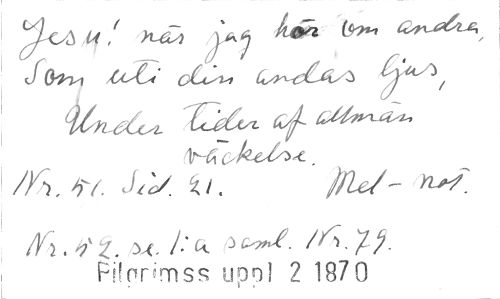 Jesu! när jag hör om andra,
Som uti din andas ljus,
Under tider af allmän
väckelse.
Nr. 51. Sid. 21. Mel-not.
Nr. 52. se. 1:a saml. Nr. 79.
Pilgrimss uppl 2 1870